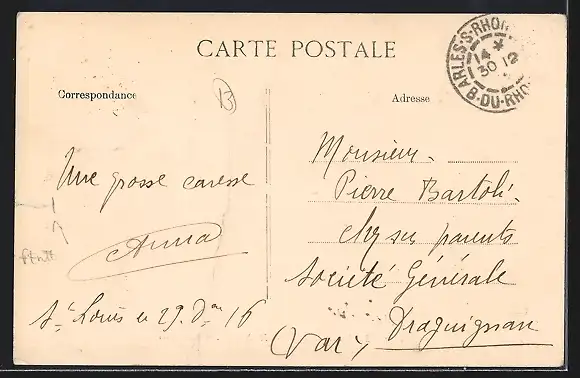 CARTE POSTALE
Correspondance
B
Adresse
ARLES-S-RHONE
14 *
30 12
B.-DU-RHONE
Une grosse caresse
Anna
St Louis le 29. Dre 16
Monsieur
Pierre Bartoli
chez ses parents
Société Générale
Draguignan
(Var)